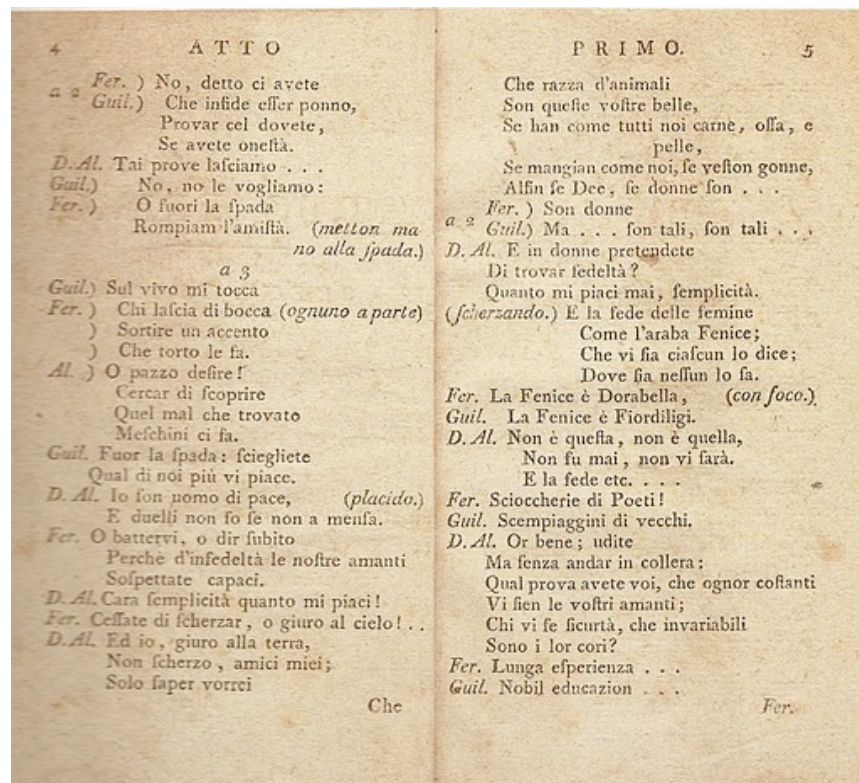 4 ATTO
Fer. ) No, detto ci avete
a 2 Guil.) Che infide eſſer ponno,
Provar cel dovete,
Se avete oneſtà.
D. Al. Tai prove laſciamo . . .
Guil.) No, no le vogliamo:
Fer. ) O fuori la ſpada
Rompiam l'amiſtà. (metton ma
no alla ſpada.)
a 3
Guil.) Sul vivo mi tocca
Fer. ) Chi laſcia di bocca (ognuno a parte)
) Sortire un accento
) Che torto le fa.
Al. ) O pazzo deſire!
Cercar di ſcoprire
Quel mal che trovato
Meſchini ci fa.
Guil. Fuor la ſpada: ſciegliete
Qual di noi più vi piace.
D. Al. Io ſon uomo di pace, (placido.)
E duelli non fo ſe non a menſa.
Fer. O battervi, o dir ſubito
Perchè d'infedeltà le noſtre amanti
Soſpettate capaci.
D. Al. Cara ſemplicità quanto mi piaci!
Fer. Ceſſate di ſcherzar, o giuro al cielo! . .
D. Al. Ed io, giuro alla terra,
Non ſcherzo, amici miei;
Solo ſaper vorrei
Che
PRIMO. 5
Che razza d'animali
Son queſte voſtre belle,
Se han come tutti noi carne, oſſa, e
pelle,
Se mangian come noi, ſe veſton gonne,
Alfin ſe Dee, ſe donne ſon . . .
Fer. ) Son donne
a 2 Guil.) Ma . . . ſon tali, ſon tali . . .
D. Al. E in donne pretendete
Di trovar fedeltà?
Quanto mi piaci mai, ſemplicità.
(ſcherzando.) E la fede delle femine
Come l'araba Fenice;
Che vi ſia ciaſcun lo dice;
Dove ſia neſſun lo ſa.
Fer. La Fenice è Dorabella, (con foco.)
Guil. La Fenice è Fiordiligi.
D. Al. Non è queſta, non è quella,
Non fu mai, non vi ſarà.
E la fede etc. . . .
Fer. Scioccherie di Poeti!
Guil. Scempiaggini di vecchi.
D. Al. Or bene; udite
Ma ſenza andar in collera:
Qual prova avete voi, che ognor coſtanti
Vi ſien le voſtri amanti;
Chi vi fe ſicurtà, che invariabili
Sono i lor cori?
Fer. Lunga eſperienza . . .
Guil. Nobil educazion . . .
Fer.